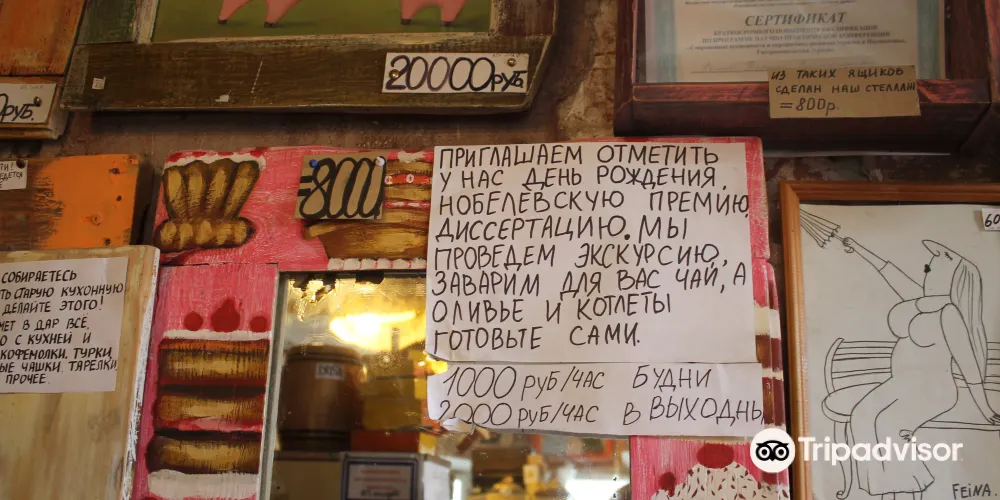 20000РУБ.
СЕРТИФИКАТ
ИЗ ТАКИХ ЯЩИКОВ
СДЕЛАН НАШ СТЕЛЛАЖ
=800р.
РУБ.
ПРИГЛАШАЕМ ОТМЕТИТЬ
У НАС ДЕНЬ РОЖДЕНИЯ,
НОБЕЛЕВСКУЮ ПРЕМИЮ,
ДИССЕРТАЦИЮ. МЫ
ПРОВЕДЕМ ЭКСКУРСИЮ,
ЗАВАРИМ ДЛЯ ВАС ЧАЙ, А
ОЛИВЬЕ И КОТЛЕТЫ
ГОТОВЬТЕ САМИ.
1000 РУБ/ЧАС БУДНИ
2000 РУБ/ЧАС В ВЫХОДНЫ
СОБИРАЕТЕСЬ
СТАРУЮ КУХОННУЮ
ДЕЛАЙТЕ ЭТОГО!
В ДАР ВСЕ,
С КУХНЕЙ И
КОФЕМОЛКИ, ТУРКИ,
ЧАШКИ, ТАРЕЛКИ
ПРОЧЕЕ.
Tripadvisor
FEINA